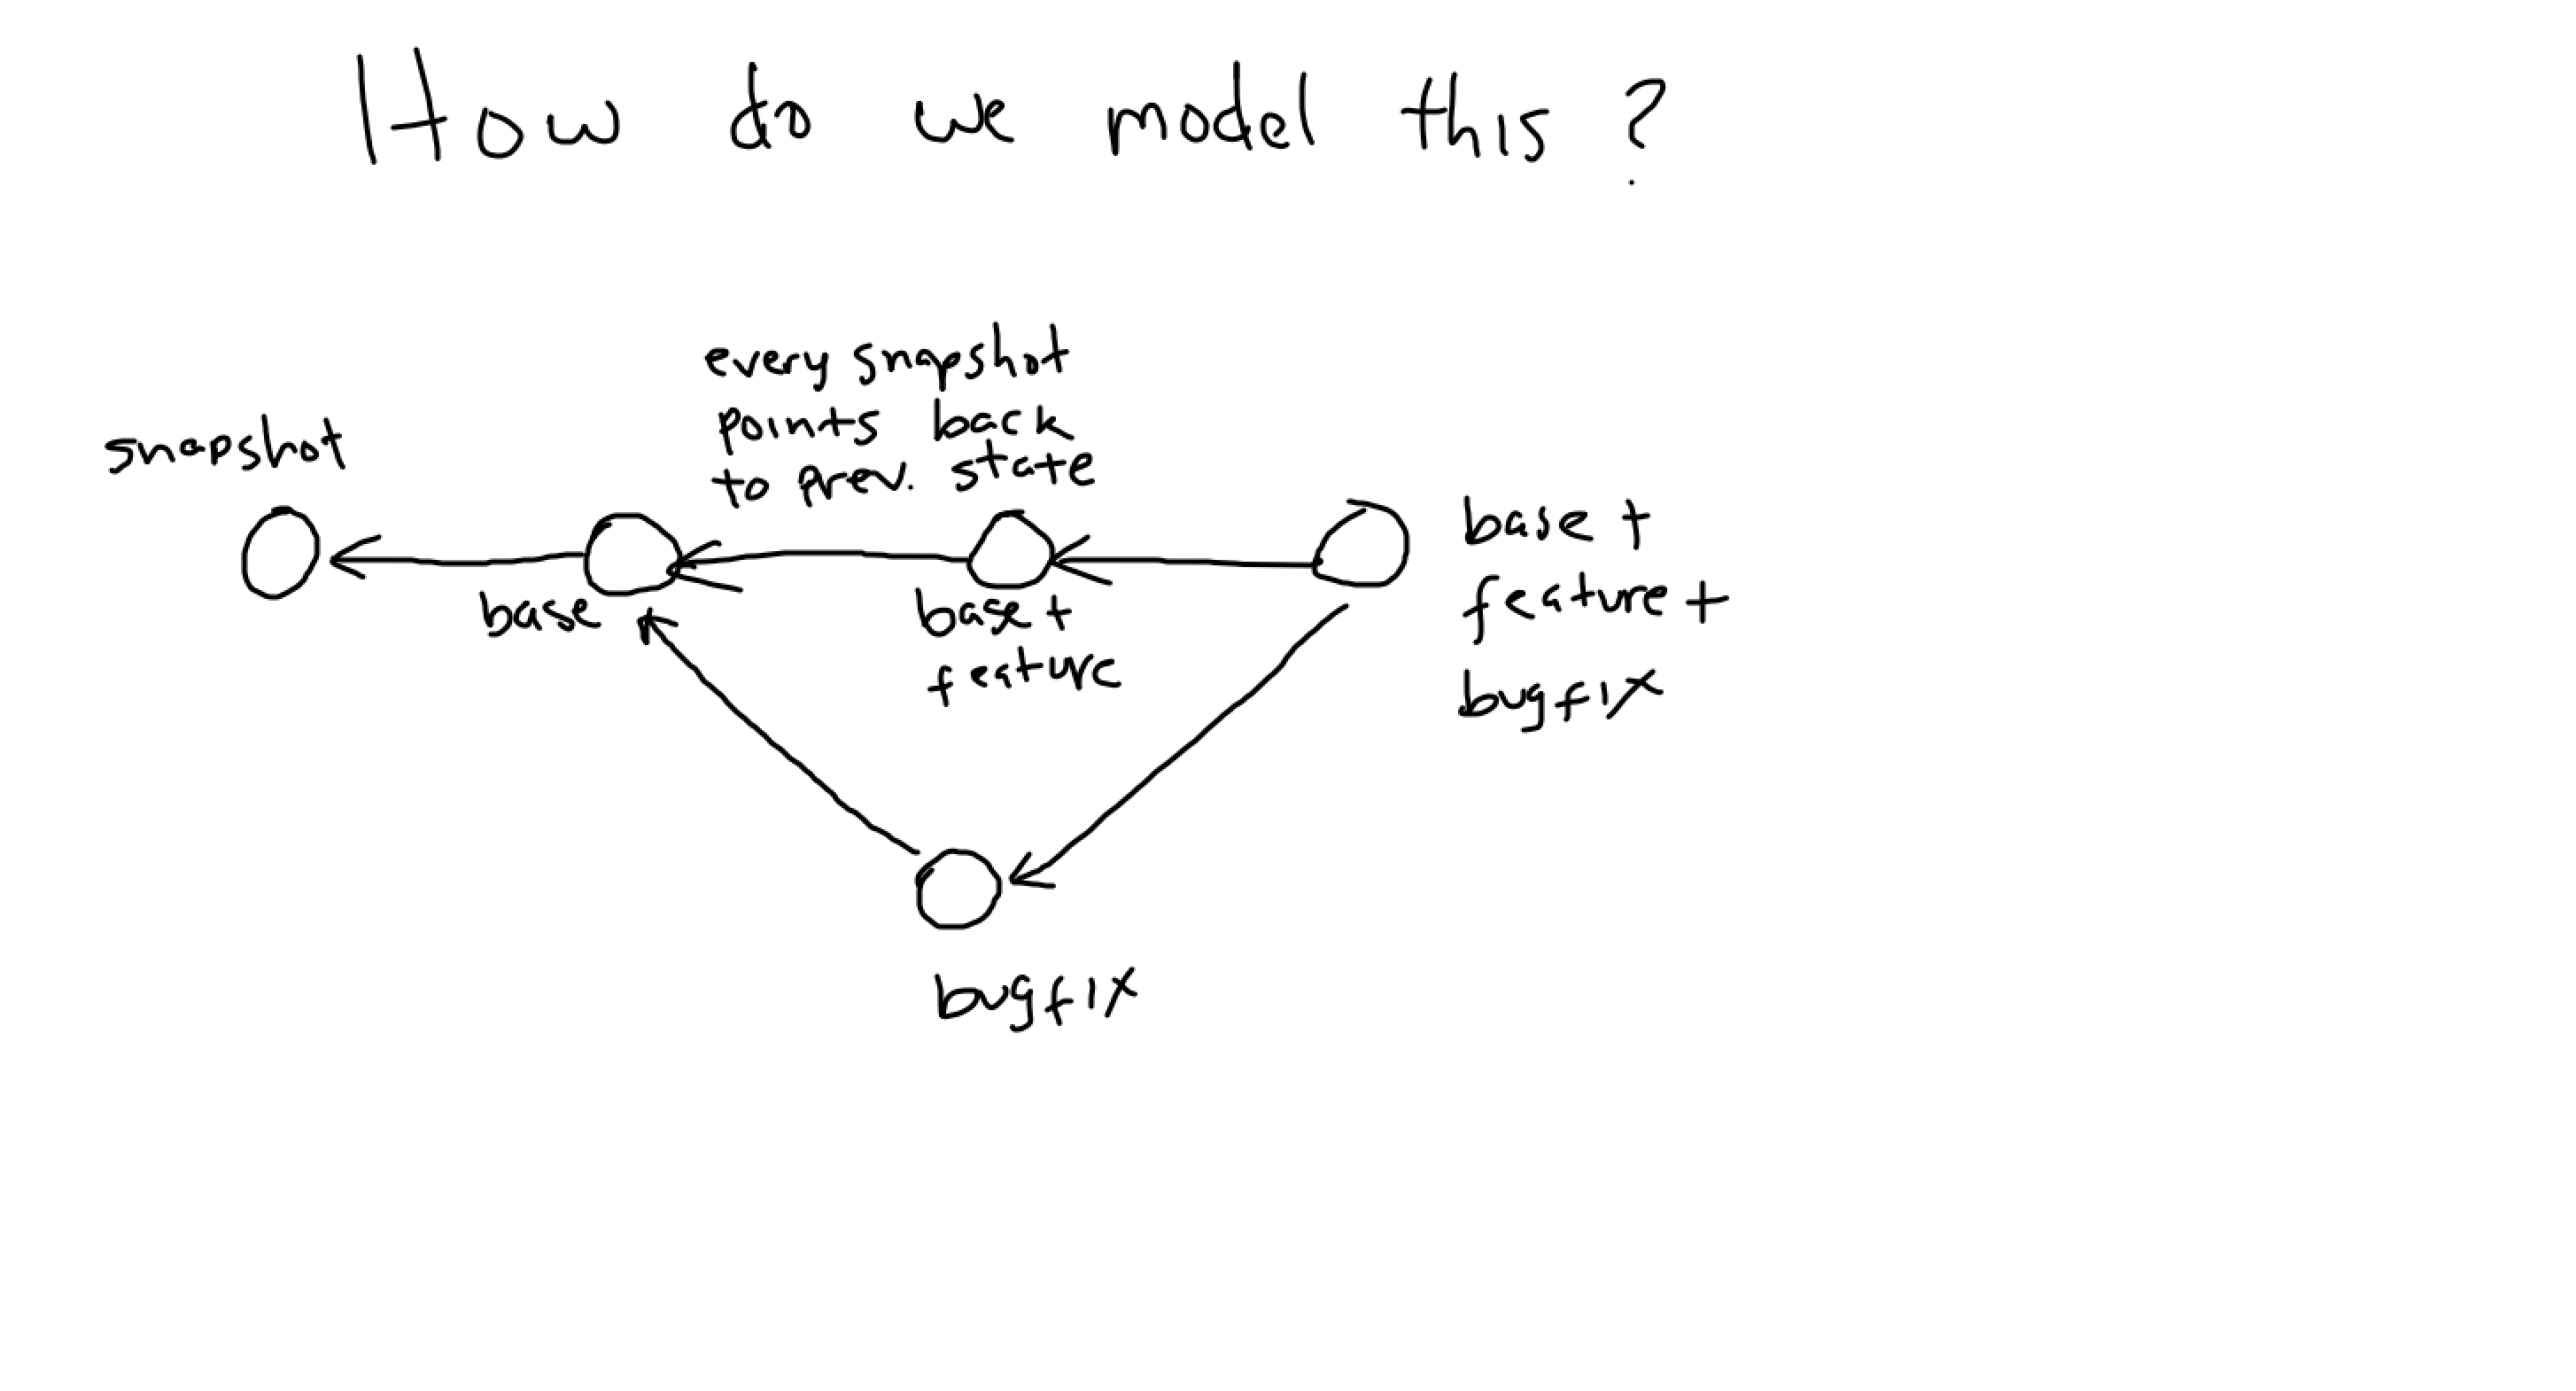 How do we model this?
every snapshot
points back
to prev. state
snapshot
base
base +
feature
base +
feature +
bugfix
bugfix